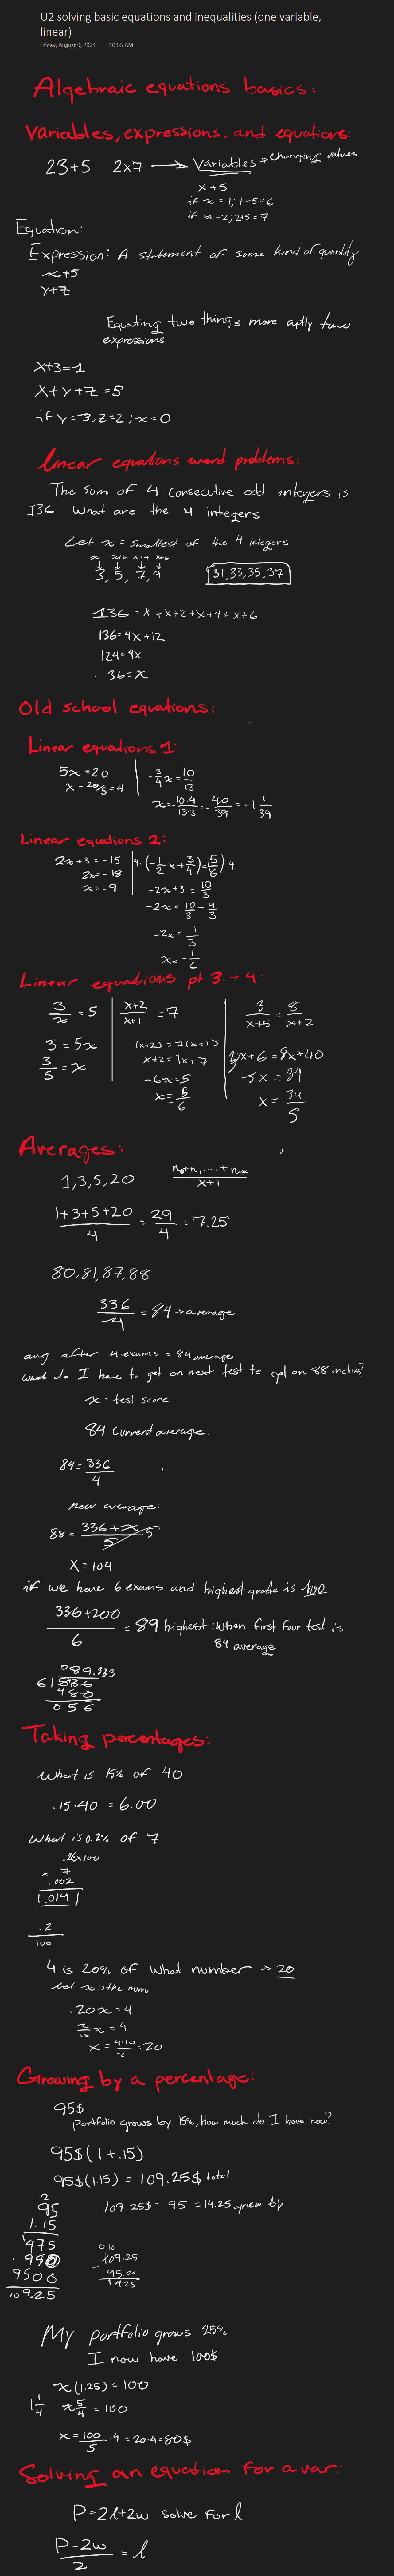 U2 solving basic equations and inequalities (one variable,
linear)
Friday, August 9, 2024 10:55 AM
Algebraic equations basics:
Variables, expressions, and equations:
23+5 2x7 → Variables → changing values
x+5
if x = 1; 1+5=6
if x=2; 2+5=7
Equation:
Expression: A statement of some kind of quantity
x+5
y+z
Equating two things more aptly two
expressions.
x+3=1
x+y+z=5
if y=3, z=2; x=0
linear equations word problems:
The sum of 4 consecutive odd integers is
136 What are the 4 integers
Let x = smallest of the 4 integers
x x+2 x+4 x+6
↓ ↓ ↓ ↓
3, 5, 7, 9 31,33,35,37
136 = x + x+2 + x+4 + x+6
136=4x+12
124=4x
36=x
Old school equations:
Linear equations 1:
5x=20 | -3/4 x = 10/13
x = 20/5 = 4 | x = -10·4/13·3 = -40/39 = -1 1/39
Linear equations 2:
2x+3=-15 | 4·(-1/2 x + 3/4) = (5/6) 4
2x=-18 | -2x+3 = 10/3
x=-9 | -2x = 10/3 - 9/3
-2x = 1/3
x = -1/6
Linear equations pt 3. + 4:
3/x = 5 | x+2/x+1 = 7 | 3/x+5 = 8/x+2
3 = 5x | (x+2) = 7(x+1) | 3x+6 = 8x+40
3/5 = x | x+2 = 7x+7 | -5x = 34
-6x=5 | x = -34/5
x = -5/6
Averages:
1,3,5,20 n₀+n,.....+nₓ/x+1
1+3+5+20/4 = 29/4 = 7.25
80,81,87,88
336/4 = 84 → average
avg. after 4 exams = 84 average
what do I have to get on next test to get on 88 in class?
x - test score
84 current average.
84 = 336/4
new average:
88 = 336+x/5 ·5
x = 104
if we have 6 exams and highest grade is 100
336+200/6 = 89 highest: when first four test is
84 average
089.333
6|536
480
056
Taking percentages:
What is 15% of 40
.15·40 = 6.00
What is 0.2% of 7
x 7
.002
.014
.2/100
4 is 20% of what number → 20
let x is the num
.20x=4
2/10 x = 4
x = 4·10/2 = 20
Growing by a percentage:
95$
portfolio grows by 15%, How much do I have now?
95$(1+.15)
95$(1.15) = 109.25$ total
109.25$ - 95 = 14.25 grew by
2
95
1.15
475
950
9500
109.25
0 10
109.25
- 95.00
14.25
My portfolio grows 25%
I now have 100$
x(1.25) = 100
1 1/4 x 5/4 = 100
x = 100/5 ·4 = 20·4 = 80$
Solving an equation for a var:
P=2l+2w solve for l
P-2w/2 = l